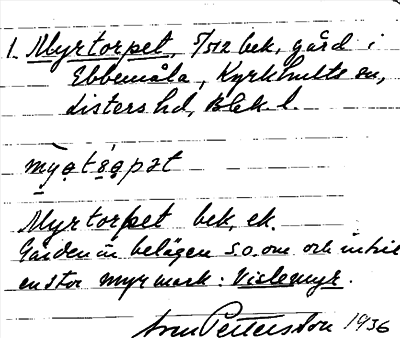 1. Myrtorpet, 5/512 bek, gård i
Ebbemåla, Kyrkhults sn,
Listers hd, Blek. l.
Myrtorpet bek, ek.
Gården är belägen S.O. om och intill
en stor myrmark: Vislemyr.
Sven Pettersson 1936